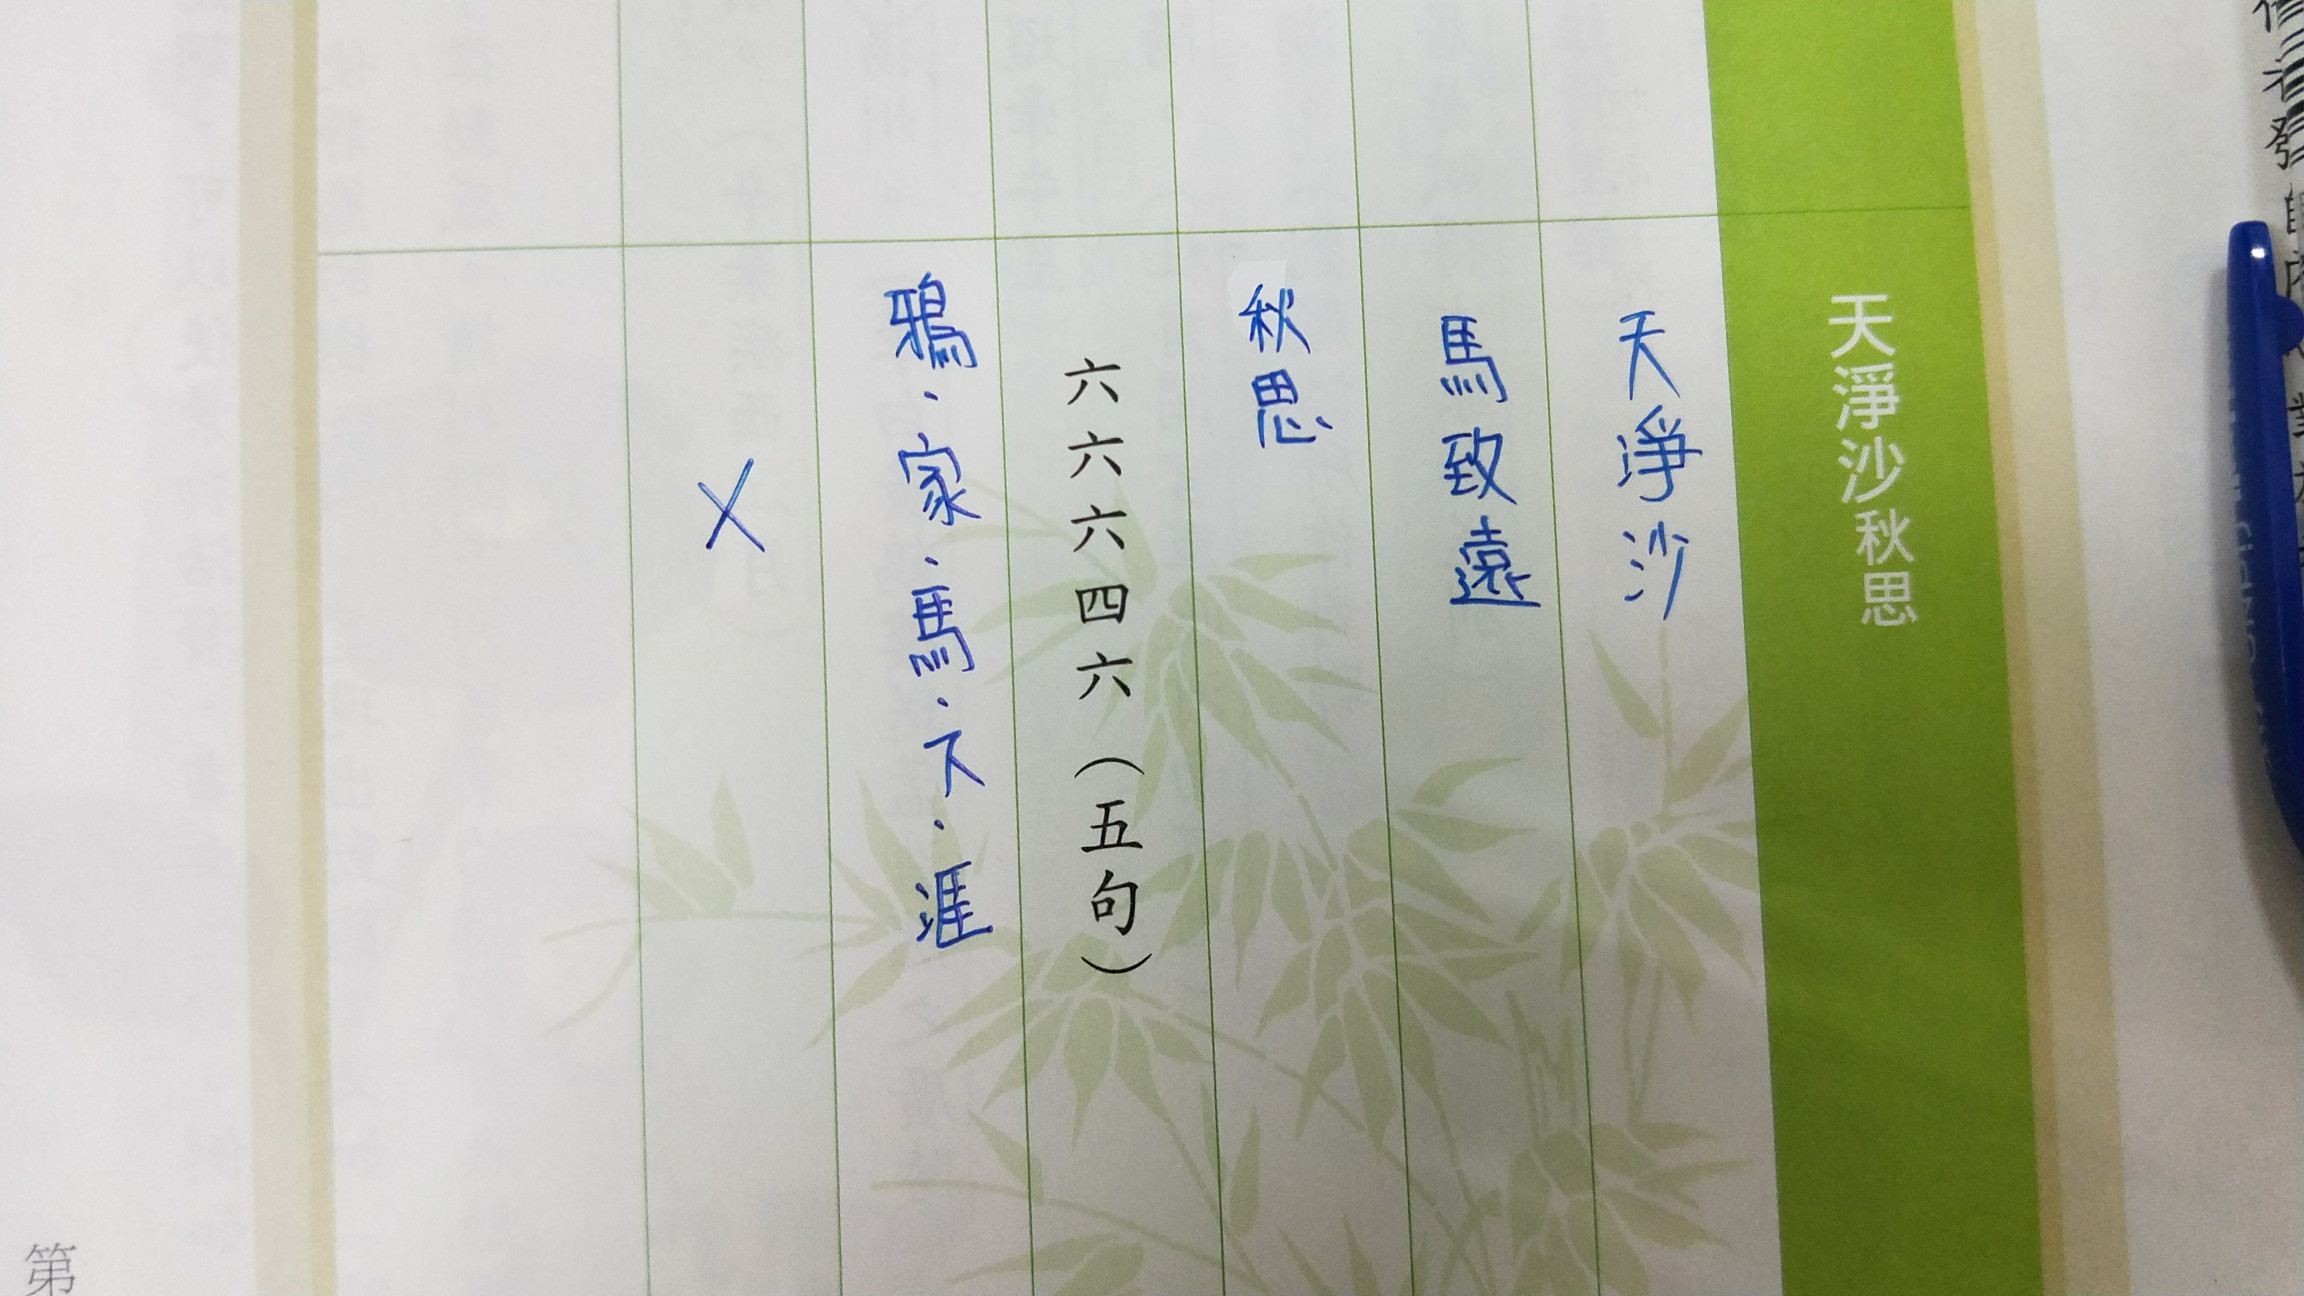 天淨沙秋思
天淨沙
馬致遠
秋思
六六六四六（五句）
鴉．家．馬．下．涯
X
第